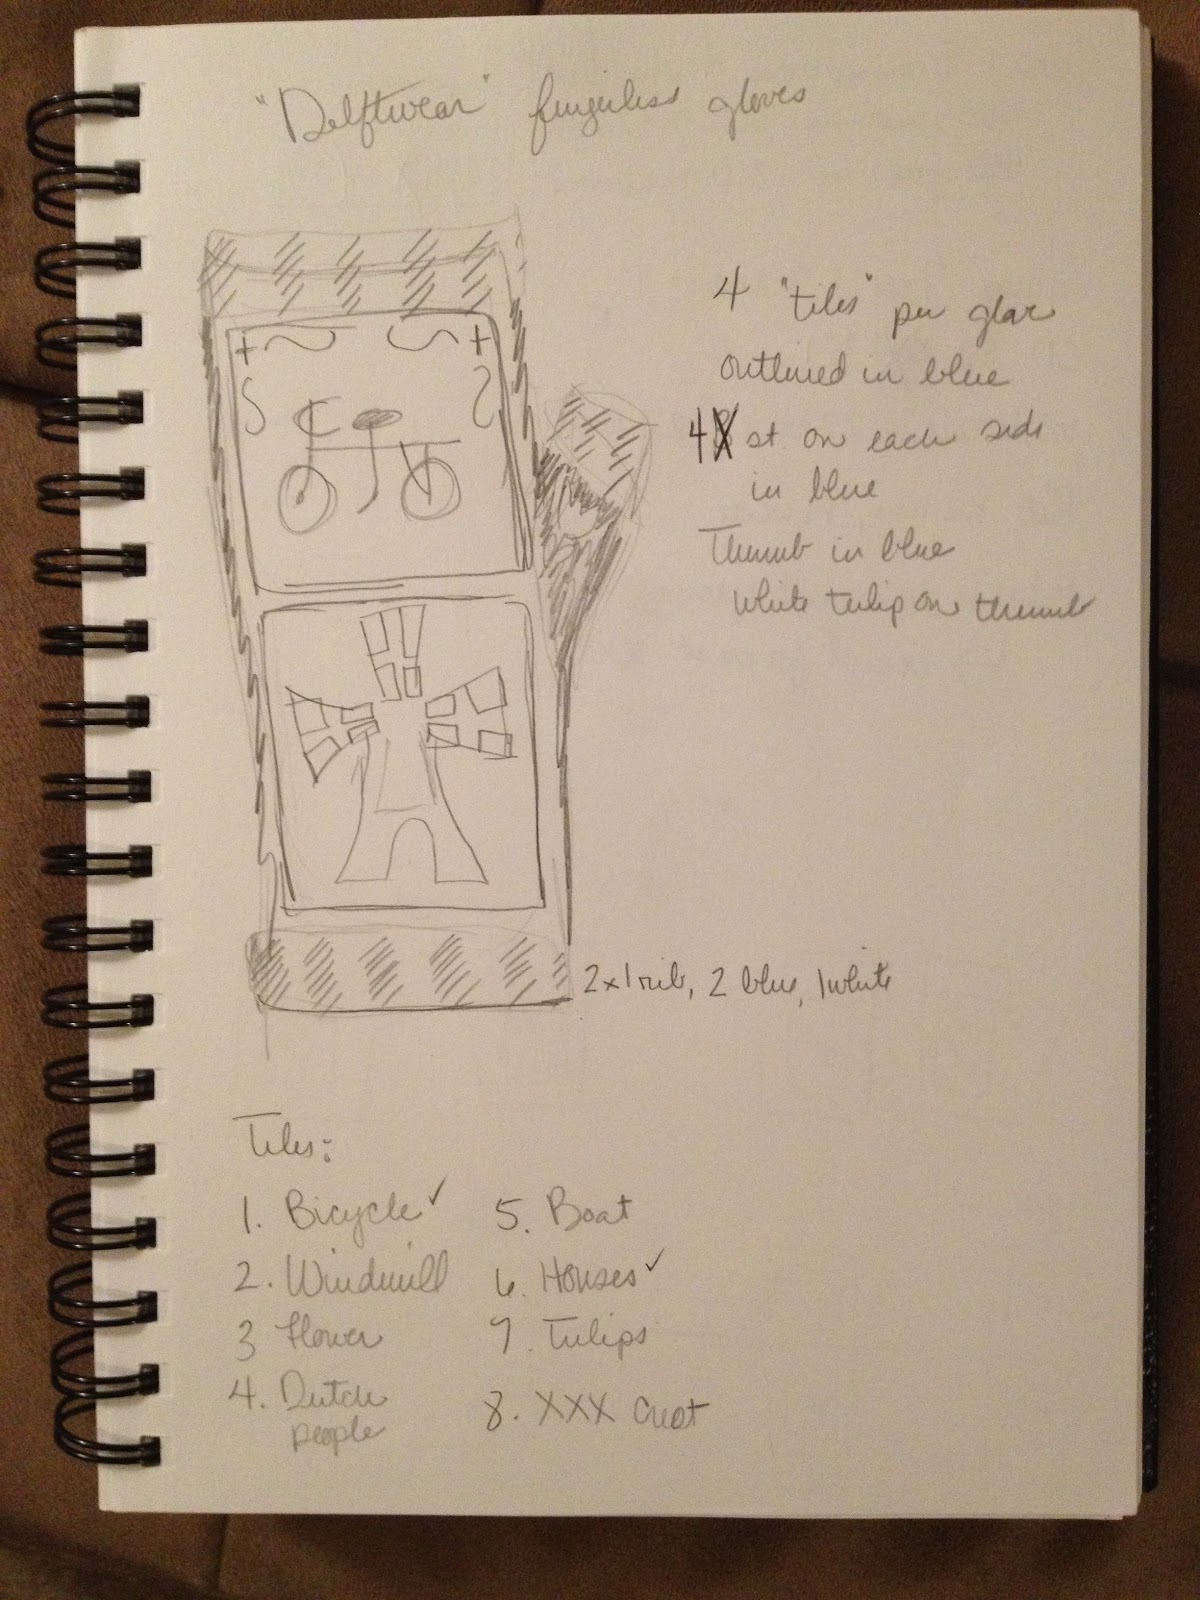 "Delftwear" fingerless gloves
4 "tiles" per glove
outlined in blue
4 st on each side
in blue
Thumb in blue
white tulip on thumb
2x1 rib, 2 blue, 1 white
Tiles:
1. Bicycle ✓
2. Windmill
3 Flower
4. Dutch
people
5. Boat
6. Houses ✓
7. Tulips
8. XXX crest